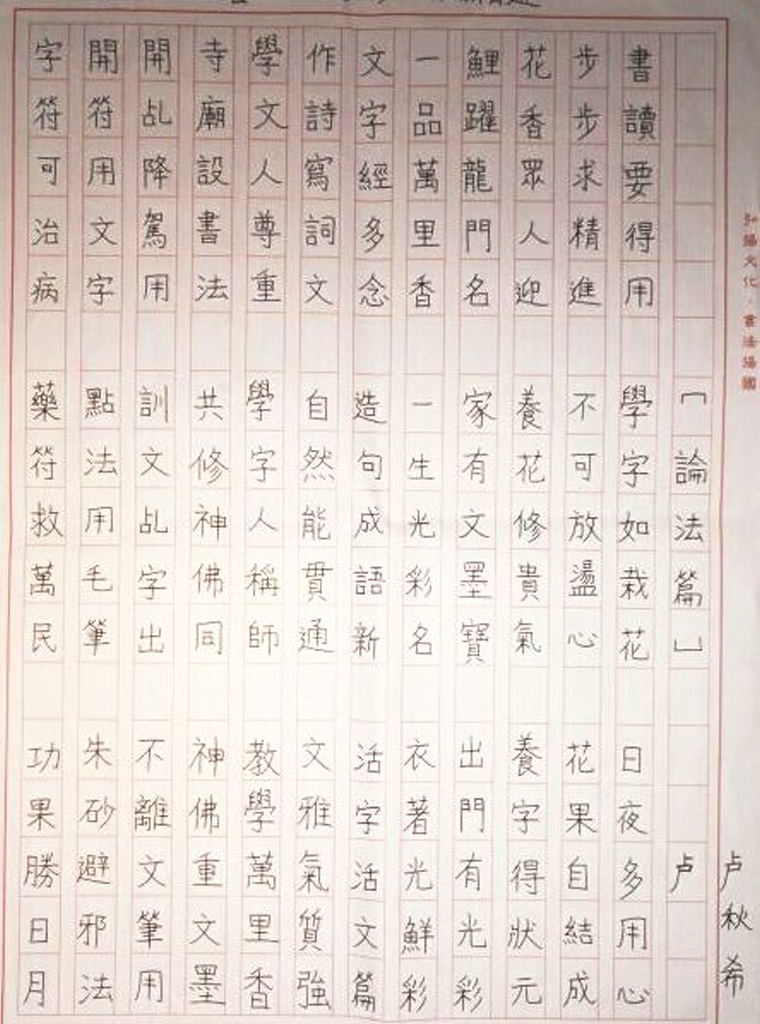 弘揚文化．書法揚國
卢秋希
「論法篇」 卢
書讀要得用 學字如栽花 日夜多用心
步步求精進 不可放盪心 花果自結成
花香眾人迎 養花修貴氣 養字得狀元
鯉躍龍門名 家有文墨寶 出門有光彩
一品萬里香 一生光彩名 衣著光鮮彩
文字經多念 造句成語新 活字活文篇
作詩寫詞文 自然能貫通 文雅氣質強
學文人尊重 學字人稱師 教學萬里香
寺廟設書法 共修神佛同 神佛重文墨
開乩降駕用 訓文乩字出 不離文筆用
開符用文字 點法用毛筆 朱砂避邪法
字符可治病 藥符救萬民 功果勝日月